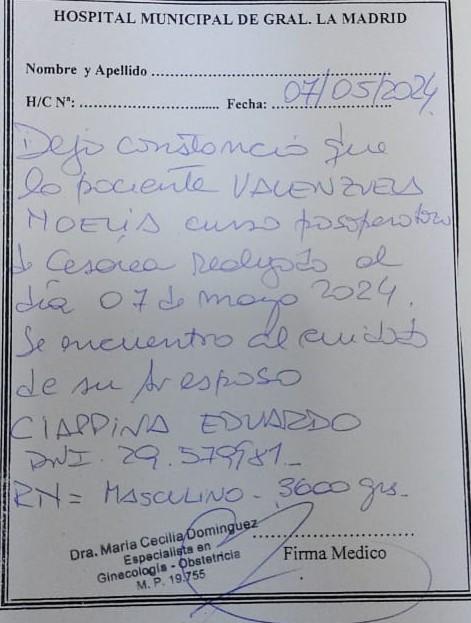 HOSPITAL MUNICIPAL DE GRAL. LA MADRID
Nombre y Apellido
H/C Nº: Fecha: 07/05/2024
Dejo constancia que
la paciente VALENZUELA
NOELIA cursa posoperatorio
de Cesarea realizada el
día 07 de mayo 2024.
Se encuentra al cuidado
de su esposo
CIAPPINA EDUARDO
DNI. 29.579981_
RN = MASCULINO - 3600 grs_
Dra. Maria Cecilia Dominguez
Especialista en
Ginecología - Obstetricia
M. P. 19.755
Firma Medico